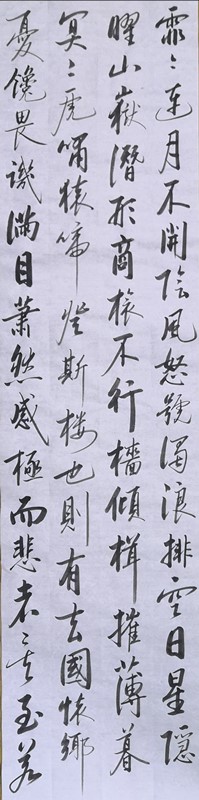 霏〻連月不開陰風怒號濁浪排空日星隱
曜山嶽潛形商旅不行檣傾楫摧薄暮
冥〻虎嘯猿啼登斯樓也則有去國懷鄉
憂讒畏譏滿目蕭然感極而悲者矣至若